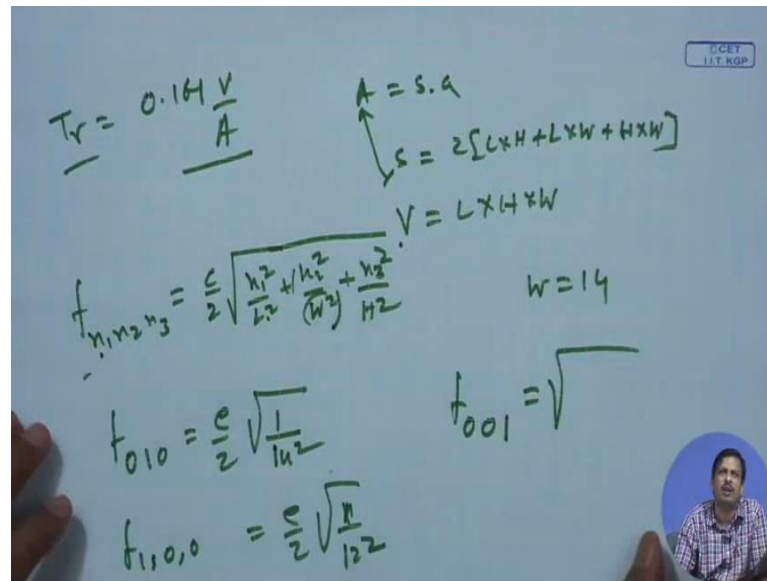 ©CET
I.I.T. KGP
Tr = 0.161 V/A
A = S.a
S = 2[L×H+L×W+H×W]
V = L×H×W
f n₁n₂n₃ = c/2 √(n₁²/L² + n₂²/(W²) + n₃²/H²)
W = 14
f₀₁₀ = c/2 √(1/14²)
f₀₀₁ = √
f₁,₀,₀ = c/2 √(n/12²)